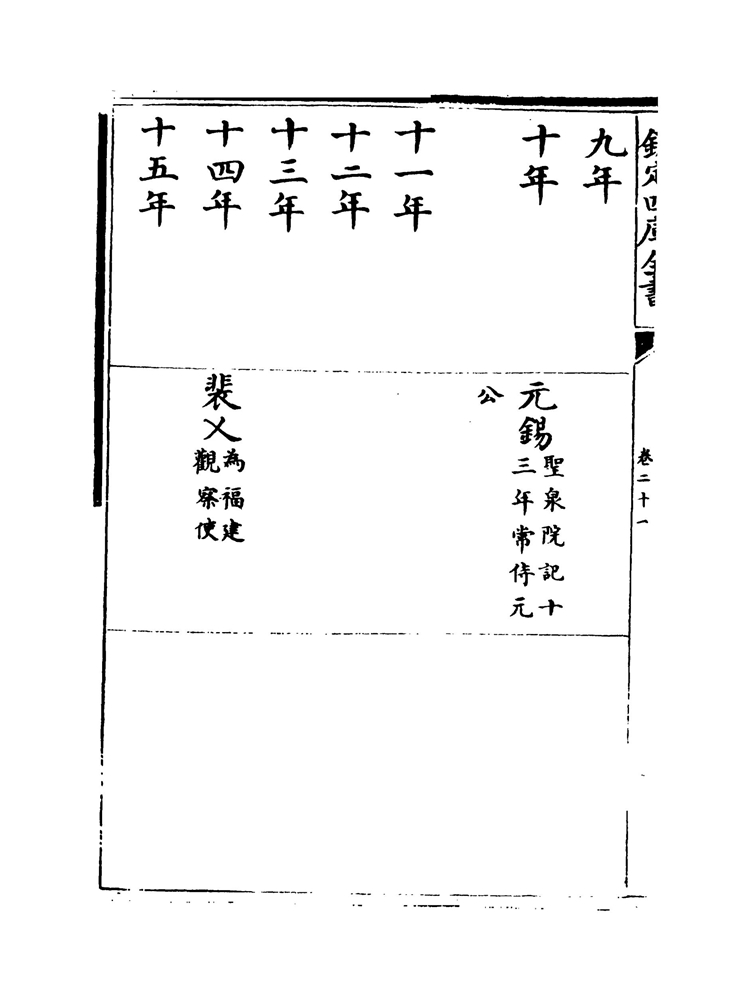 欽定四庫全書
卷二十一
九年
十年
元錫聖泉院記十三年常侍元公
十一年
十二年
十三年
十四年
裴乂為福建觀察使
十五年